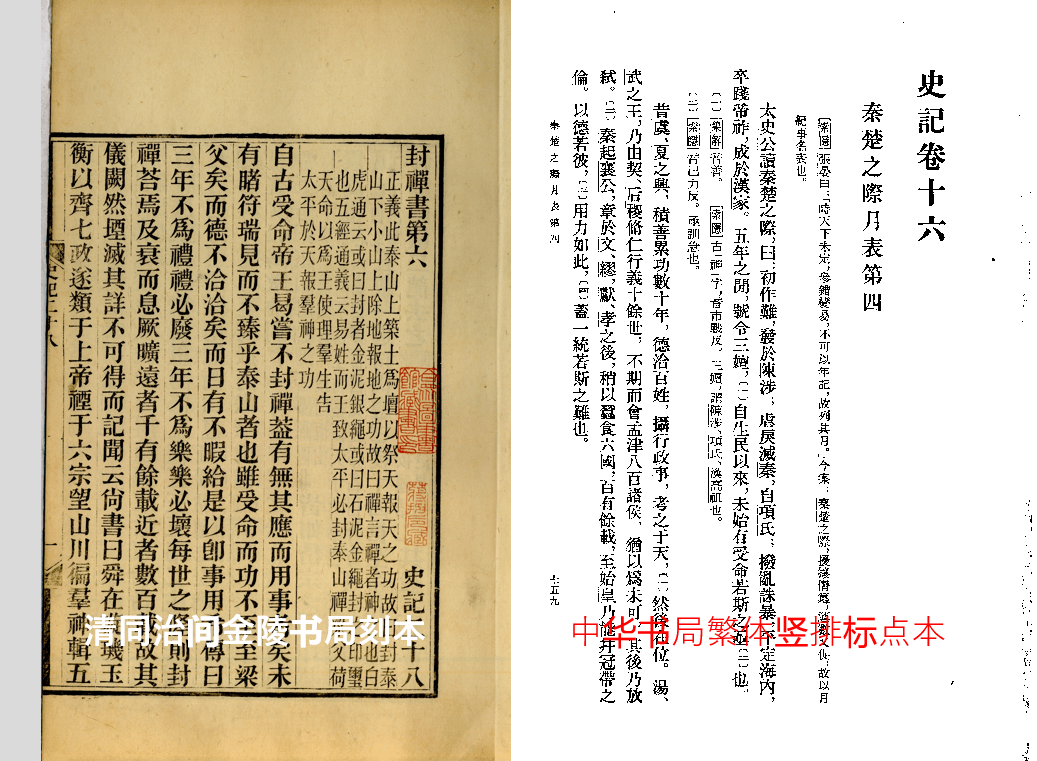 封禪書第六　史記二十八
正義此泰山上築土爲壇以祭天報天之功故曰封泰
山下小山上除地報地之功故曰禪言禪者神之也白
虎通云或曰封者金泥銀繩或曰石泥金繩封之印璽
也五經通義云易姓而王致太平必封泰山禪梁父荷
天命以爲王使理羣生告
太平於天報羣神之功
自古受命帝王曷嘗不封禪蓋有無其應而用事者矣未
有睹符瑞見而不臻乎泰山者也雖受命而功不至至梁
父矣而德不洽洽矣而日有不暇給是以卽事用希傳曰
三年不爲禮禮必廢三年不爲樂樂必壞每世之隆則封
禪荅焉及衰而息厥曠遠者千有餘載近者數百載故其
儀闕然堙滅其詳不可得而記聞云尙書曰舜在璇璣玉
衡以齊七政遂類于上帝禋于六宗望山川徧羣神輯五
清同治间金陵书局刻本
史記卷十六
秦楚之際月表第四
〔索隱〕張晏曰：「時天下未定，參錯變易，不可以年記，故列其月。」今案：秦楚之際，擾攘僭篡，運數又促，故以月
紀事名表也。
太史公讀秦楚之際，曰：初作難，發於陳涉；虐戾滅秦，自項氏；撥亂誅暴，平定海內，
卒踐帝祚，成於漢家。五年之閒，號令三嬗，〔一〕自生民以來，未始有受命若斯之亟〔二〕也。
〔一〕〔集解〕音善。〔索隱〕古「禪」字，音市戰反。三嬗，謂陳涉、項氏、漢高祖也。
〔二〕〔索隱〕音己力反。亟訓急也。
昔虞、夏之興，積善累功數十年，德洽百姓，攝行政事，考之于天，〔一〕然後在位。湯、
武之王，乃由契、后稷脩仁行義十餘世，不期而會孟津八百諸侯，猶以爲未可，其後乃放
弒。〔二〕秦起襄公，章於文、繆，獻、孝之後，稍以蠶食六國，百有餘載，至始皇乃能并冠帶之
倫。以德若彼，〔三〕用力如此，〔四〕蓋一統若斯之難也。
秦楚之際月表第四
七五九
中华书局繁体竖排标点本